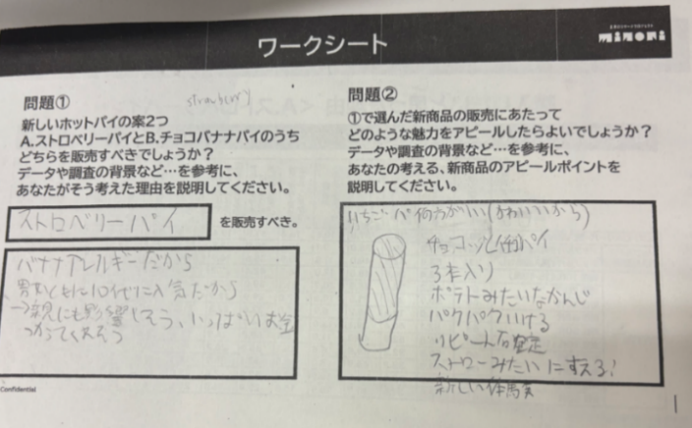 ワークシート
minori
問題①
strawberry
新しいホットパイの案2つ
A.ストロベリーパイとB.チョコバナナパイのうち
どちらを販売すべきでしょうか？
データや調査の背景など…を参考に、
あなたがそう考えた理由を説明してください。
ストロベリーパイ
を販売すべき。
バナナアレルギーだから
男女ともに10代に人気だから
→親にも影響しそう、いっぱいお金
つかってくれそう
Confidential
問題②
①で選んだ新商品の販売にあたって
どのような魅力をアピールしたらよいでしょうか？
データや調査の背景など…を参考に、
あなたの考える、新商品のアピールポイントを
説明してください。
いちご
(かわいいから)
チョコ
パイ
3本入り
ポテトみたいなかんじ
パクパクいける
リピート
ストローみたいにすえる!
新しい体験